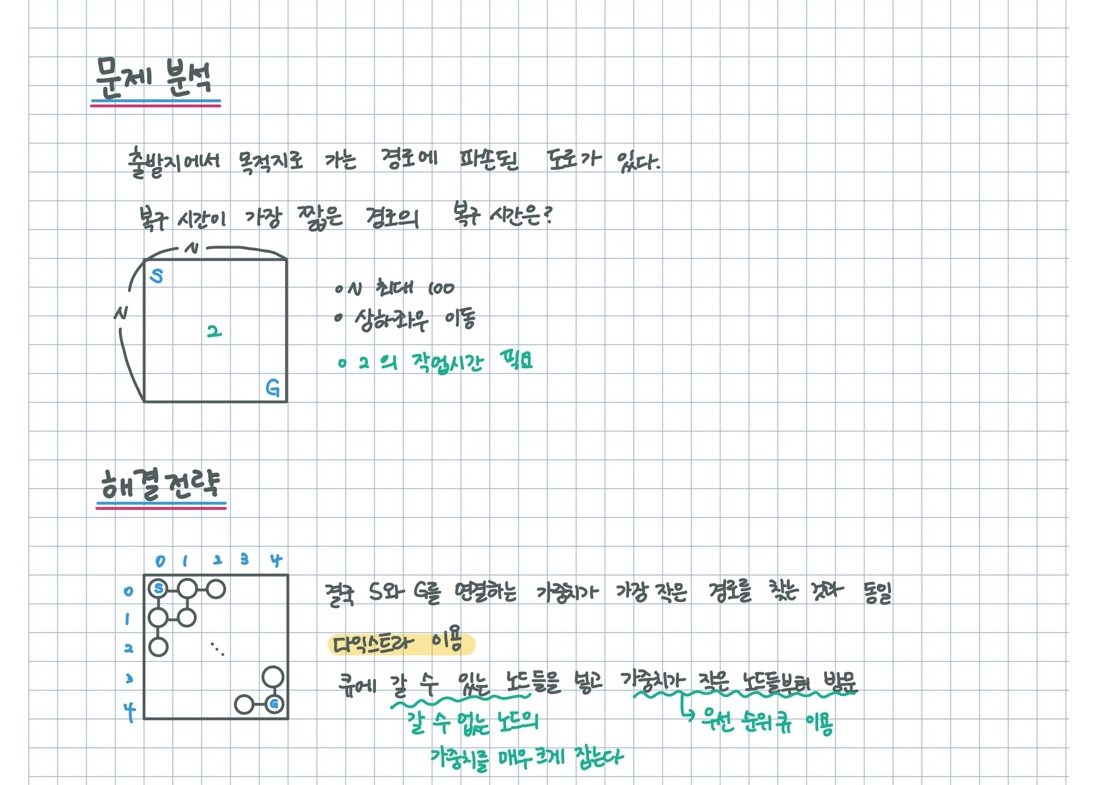 문제 분석
출발지에서 목적지로 가는 경로에 파손된 도로가 있다.
복구 시간이 가장 짧은 경로의 복구 시간은?
N
S
N
2
G
• N 최대 100
• 상하좌우 이동
• 2의 작업시간 필요
해결전략
0 1 2 3 4
0 S
1
2
3
4 G
결국 S와 G를 연결하는 가중치가 가장 작은 경로를 찾는 것과 동일
다익스트라 이용
큐에 갈 수 있는 노드들을 넣고 가중치가 작은 노드들부터 방문
갈 수 없는 노드의
가중치를 매우 크게 잡는다
↳ 우선 순위 큐 이용